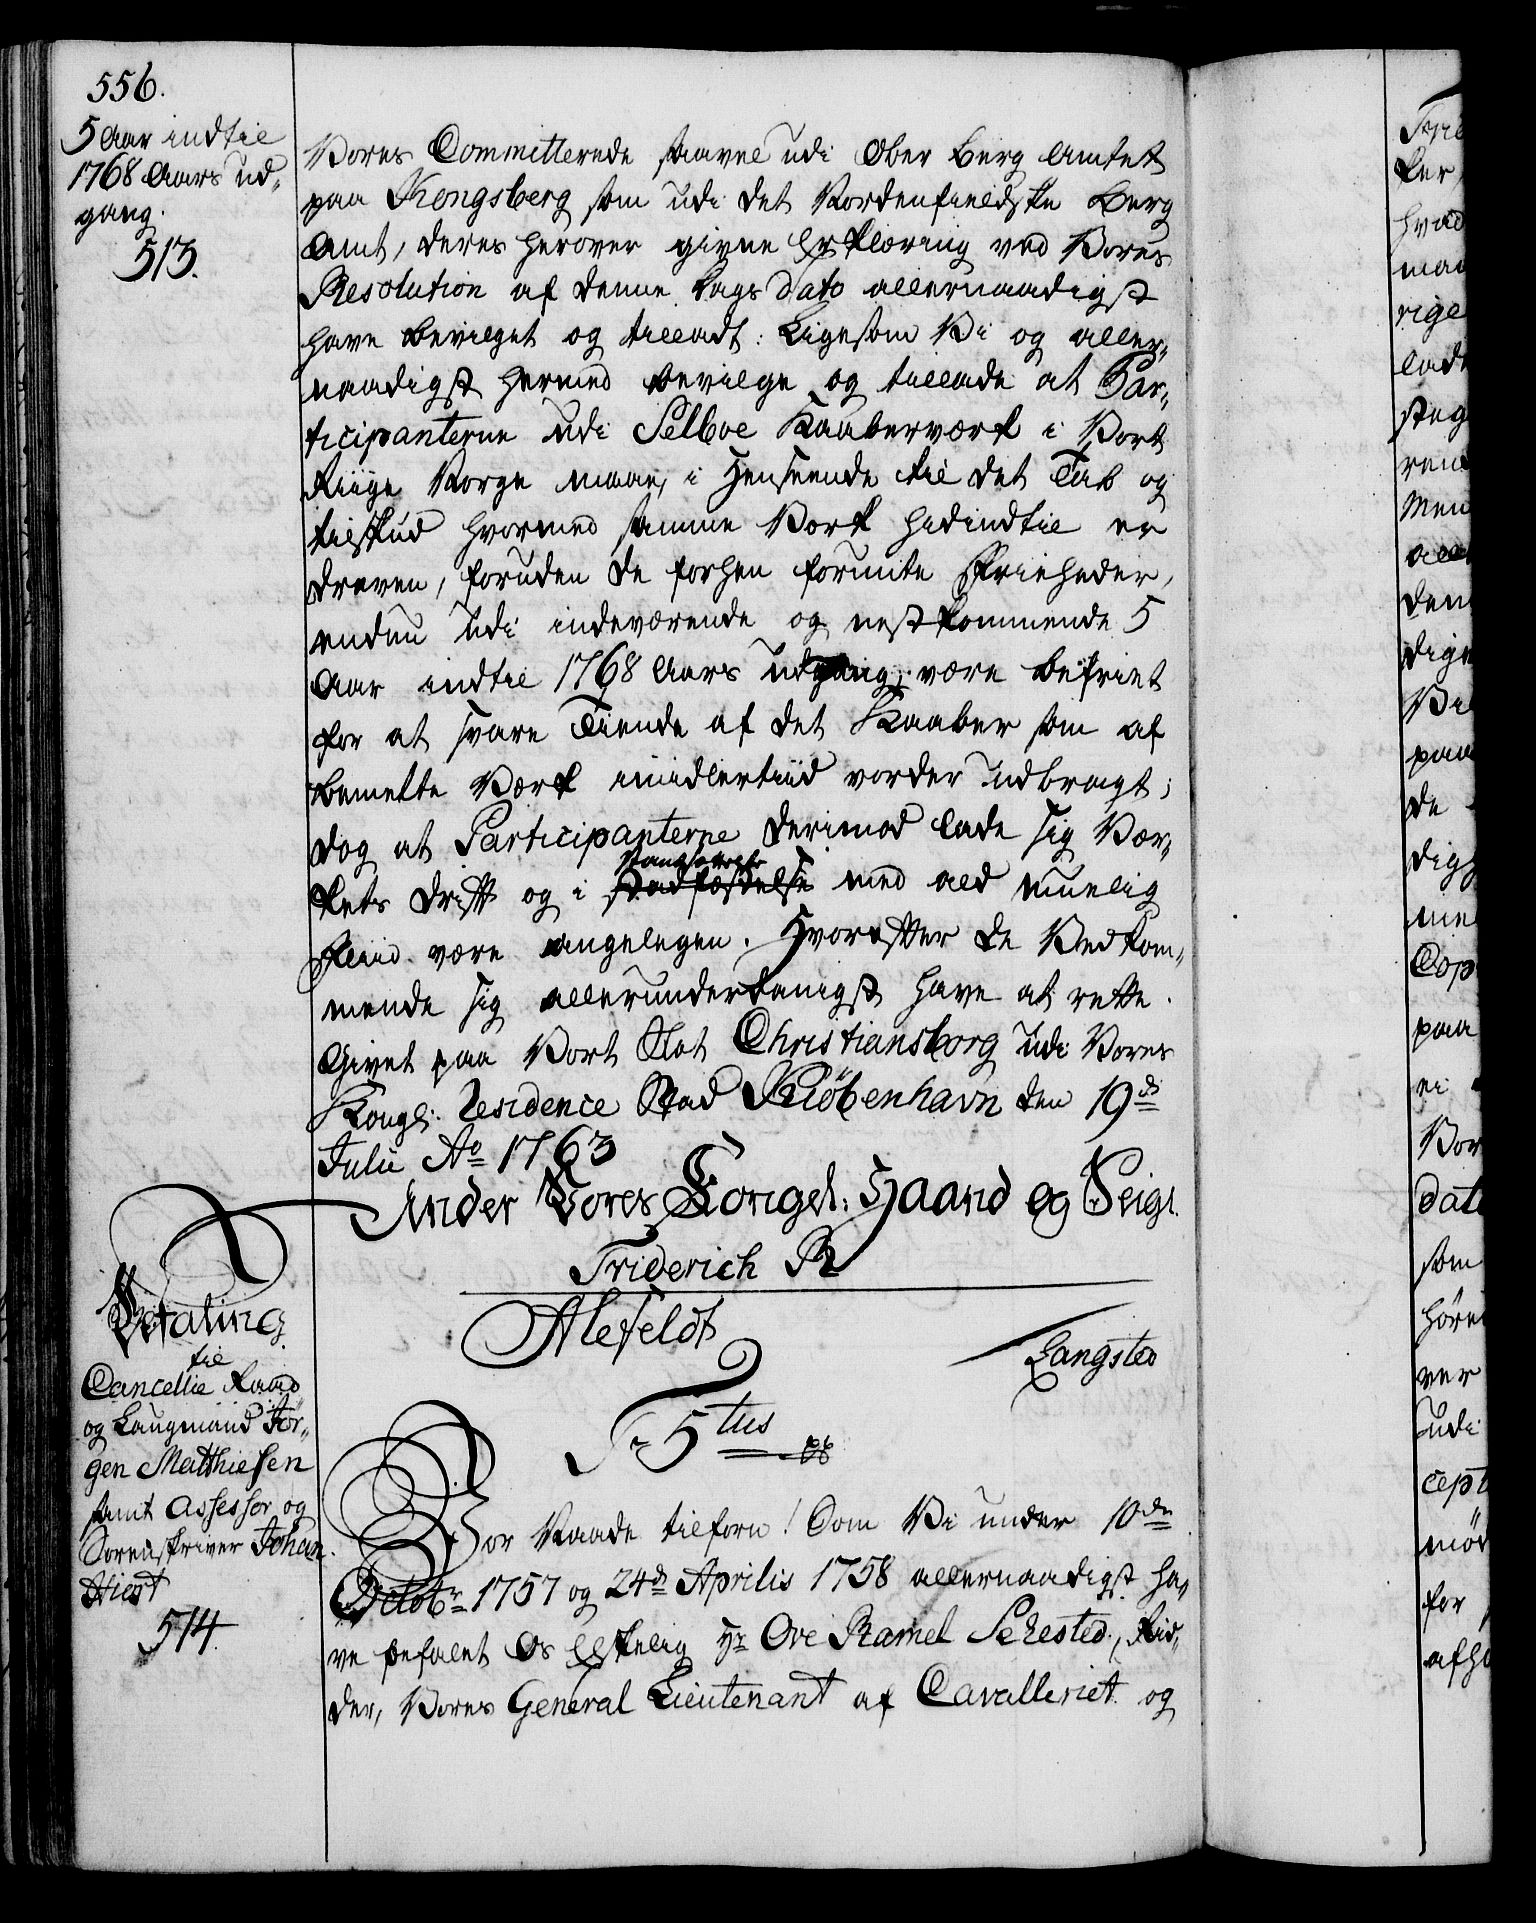 556.
5 Aar indtil
1768 Aars Ud-
gang.
513.
Vores Committerede saavel udi Ober Berg Amtet
paa Kongsberg som udi det Nordenfieldske Berg
Amt, deres herover givne Erklæring ved Vores
Resolution af denne Dags Dato allernaadigst
have bevilget og tilladt: Ligesom Vi og aller-
naadigst hermed bevilge og tillade at Par-
ticipanterne udi Selboe Kaaberværk i Vort
Riige Norge maae, i Henseende til det Tab og
tilskud hvormed samme Værk hidindtil er
dreven, foruden de forhen forundte Friheder,
endnu udi indeværende og nestkommende 5
Aar indtil 1768 Aars Udgang, være befriet
for at svare Tiende af det Kaaber som af
bemelte Værk imidlertiid vorder udbragt;
dog at Participanterne derimod lade sig Vær-
kets Drift og i Standsættelse med ald muelig
Fliid være angelegen. Hvorefter de Vedkom-
mende sig allerunderdanigst have at rette.
Givet paa Vort Slot Christiansborg udi Vores
Kongl: Residence Stad Kiöbenhavn den 19de
Julii Ao 1763
Under Vores Kongel: Haand og Seigl.
Friderich R
Ahlefeldt
Langsted
Betaling
til
Cancellie Raad
og Laugmand Jör-
gen Matthiesen
samt Assessor og
Sorenskriver Johan
Hiort
514.
Fr 5tus
Vor Naade tilforn! Som Vi under 10de
Octobr 1757 og 24de Aprilis 1758 allernaadigst ha-
ve befalet Os Elskelig Hr Ove Ramel Sehested, Rid-
der, Vores General Lieutenant af Cavalleriet og